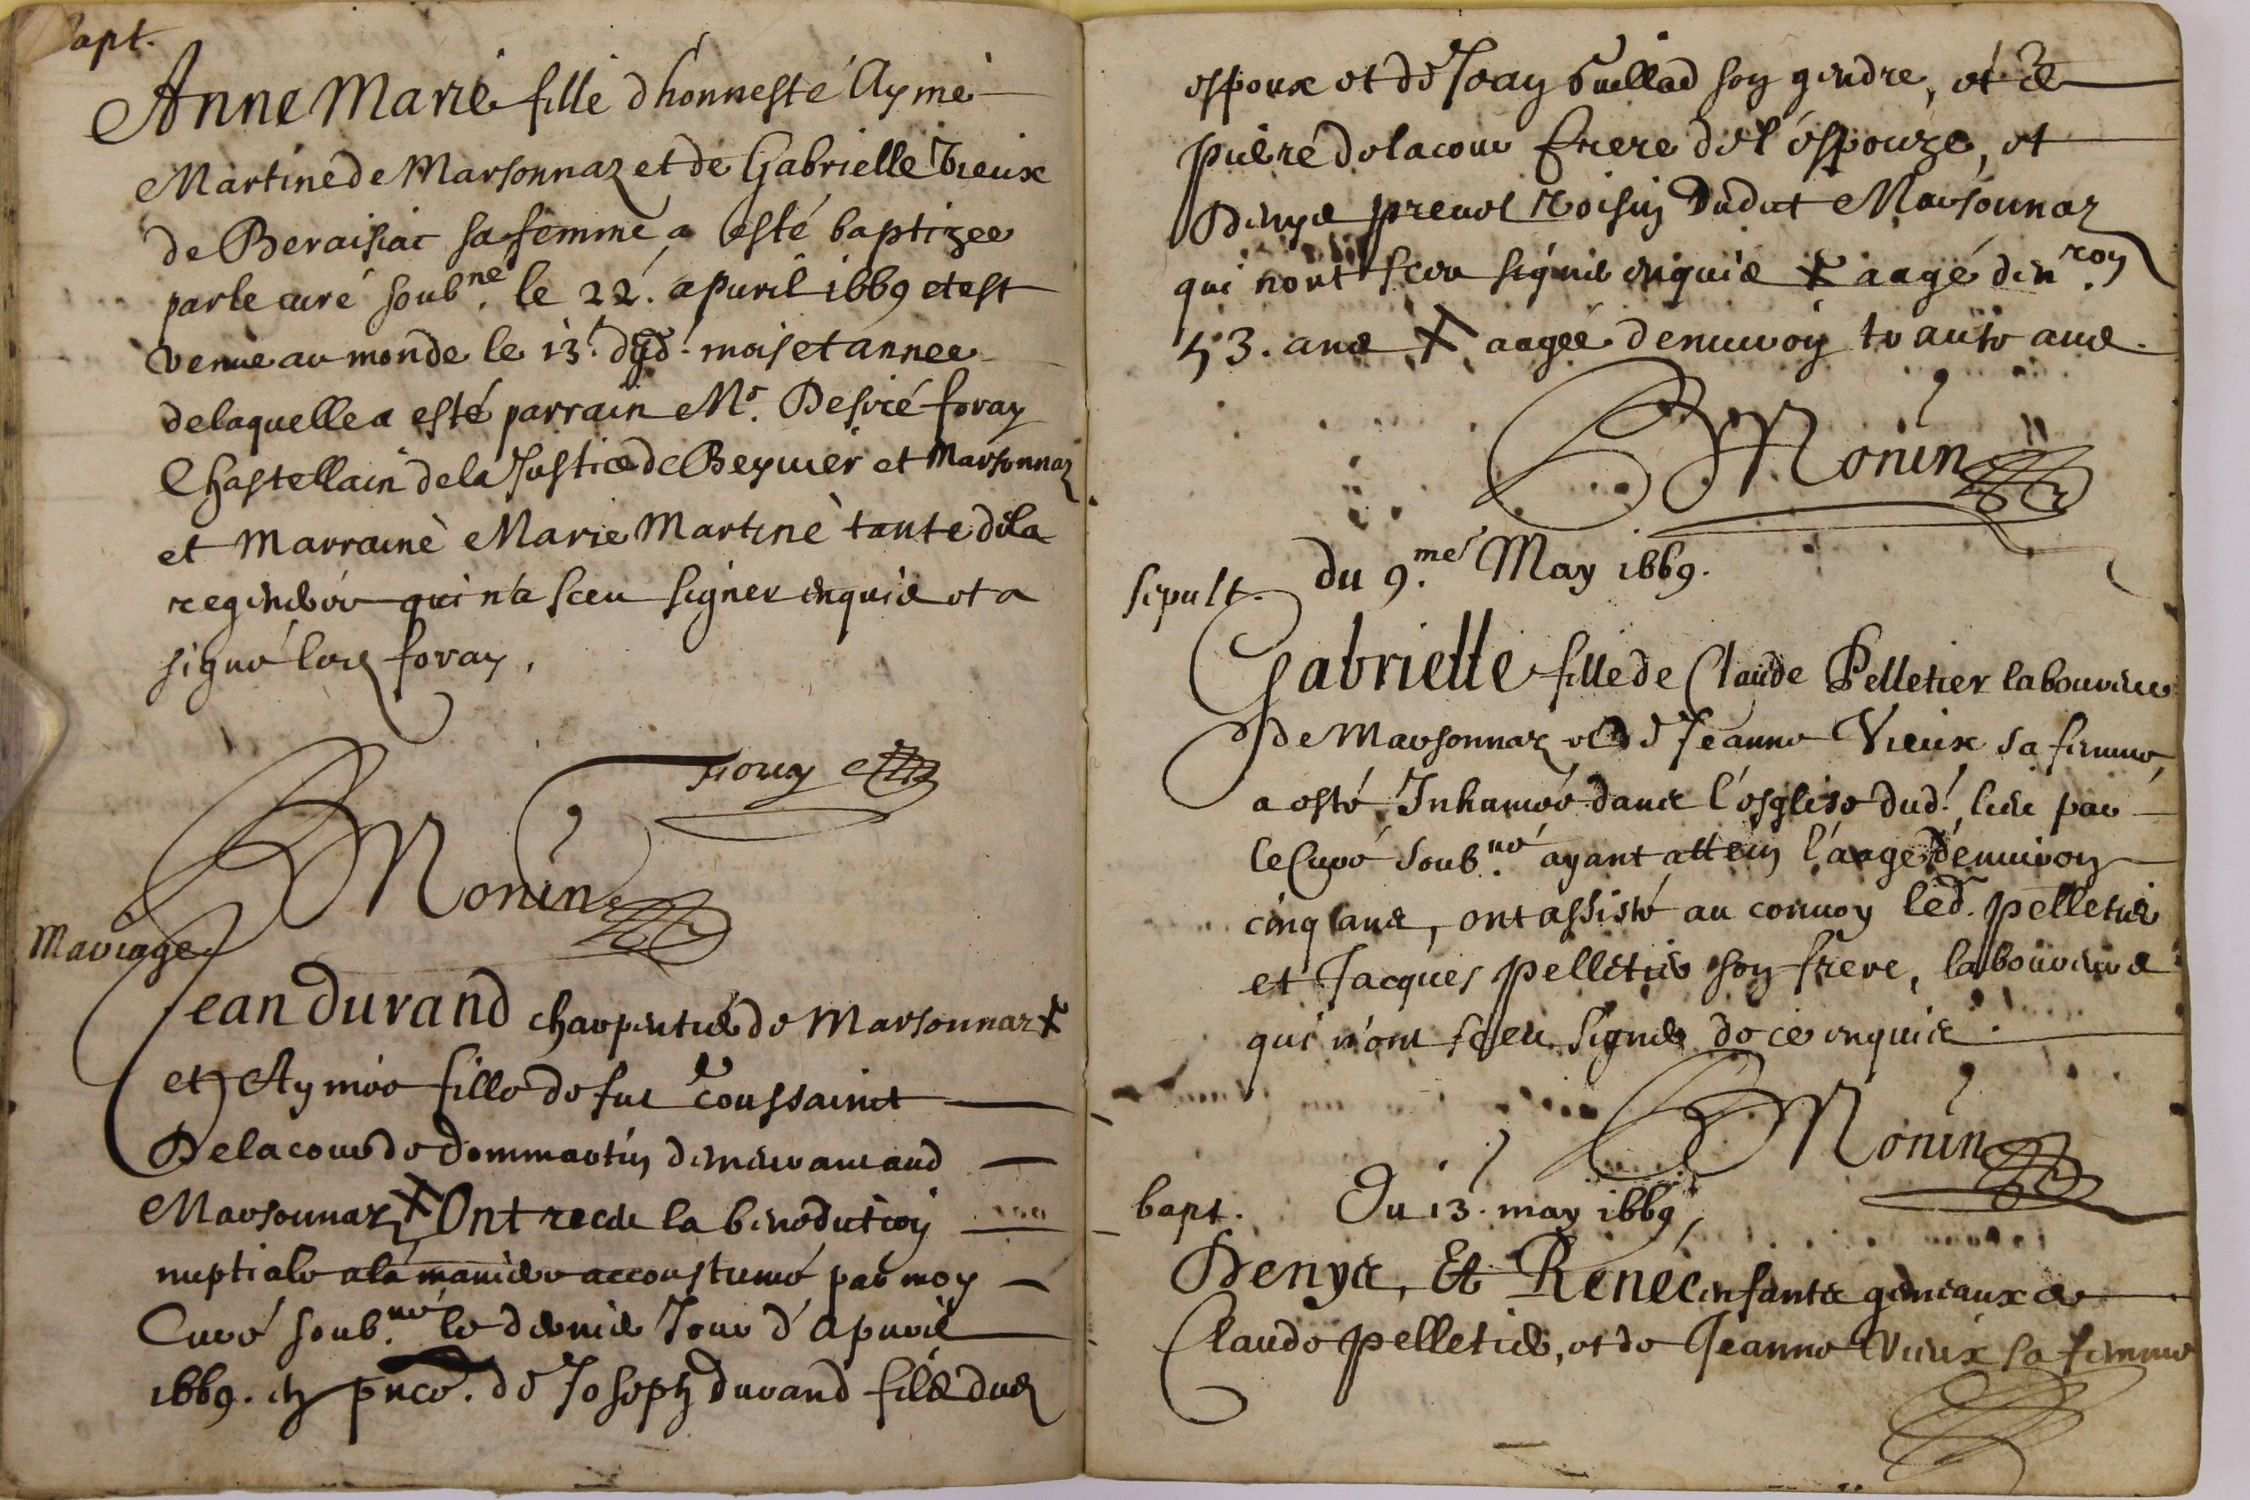 bapt.
Anne Marie fille dhonneste Aymé
Martine de Marsonnaz et de Gabrielle Vieux
de Beraisiat sa femme a esté baptizee
par le curé soub.né le 22. apuril 1669 et est
venue au monde le 13. dud. mois et annee
delaquelle a esté parrain Mr. Desiré foray
Chastellain dela Justice de Beyuier et Marsonnaz
et Marraine Marie Martine tante dela
regeneree qui n'a sceu signer enquis et a
signé led foray.
foray
Monin
Mariage
Jean durand charpentier de Marsonnaz +
et Aymée fille de fut Toussainct
Delacour de dommartin demeurant aud
Marsonnaz + Ont receu la benediction
nuptiale a la maniere accoustumé par moy
Curé soub.né le dernier Jour d'apuril
1669. en pnce. de Joseph durand fils dud
espoux et de Jean Guillod son gendre, et de
pierre delacour frere de l'espouze, et
Denys preuot Voisin dudict Marsonnaz
qui n'ont sceu signer enquis + aagé d'en.ron
53. ans + aagée denuiron trante ans.
Monin
sepult. du 9.me May 1669.
Gabrielle fille de Claude Pelletier laboureur
de Marsonnaz et de Jeanne Vieux sa femme,
a esté Inhumée dans l'esglise dud. lieu par
le Curé soub.né ayant attein l'aage d'enuiron
cinq ans, ont assisté au conuoy led. pelletier
et Jacques pelletier son frere, laboureurs
qui n'ont sceu signer de ce enquis.
Monin
bapt. Du 13. may 1669,
Denys, Et Renée enfants gemeaux de
Claude pelletier, et de Jeanne Vieux sa femme